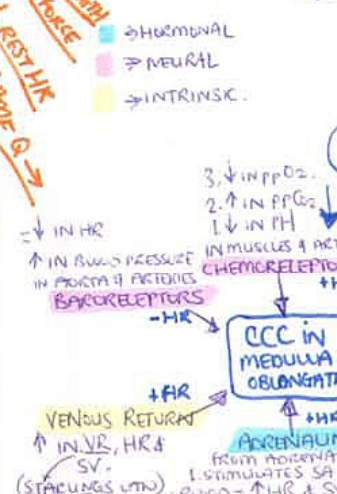 FORCE
REST HR
Q →
→ HORMONAL
→ NEURAL
→ INTRINSIC.
3. ↓ IN ppO2.
2. ↑ IN PPCO2
1. ↓ IN PH
IN MUSCLES & ART
CHEMORELEPTO
+H
- ↓ IN HR
↑ IN BLOOD PRESSURE
IN AORTA & ARTERIES
BARORELEPTORS
-HR
CCC in
MEDULLA
OBLONGATA
+HR
VENOUS RETURN
↑ IN VR, HR &
SV.
(STARLINGS LAW)
+HR
ADRENALIN
FROM ADRENA
1. STIMULATES SA
↑HR & S